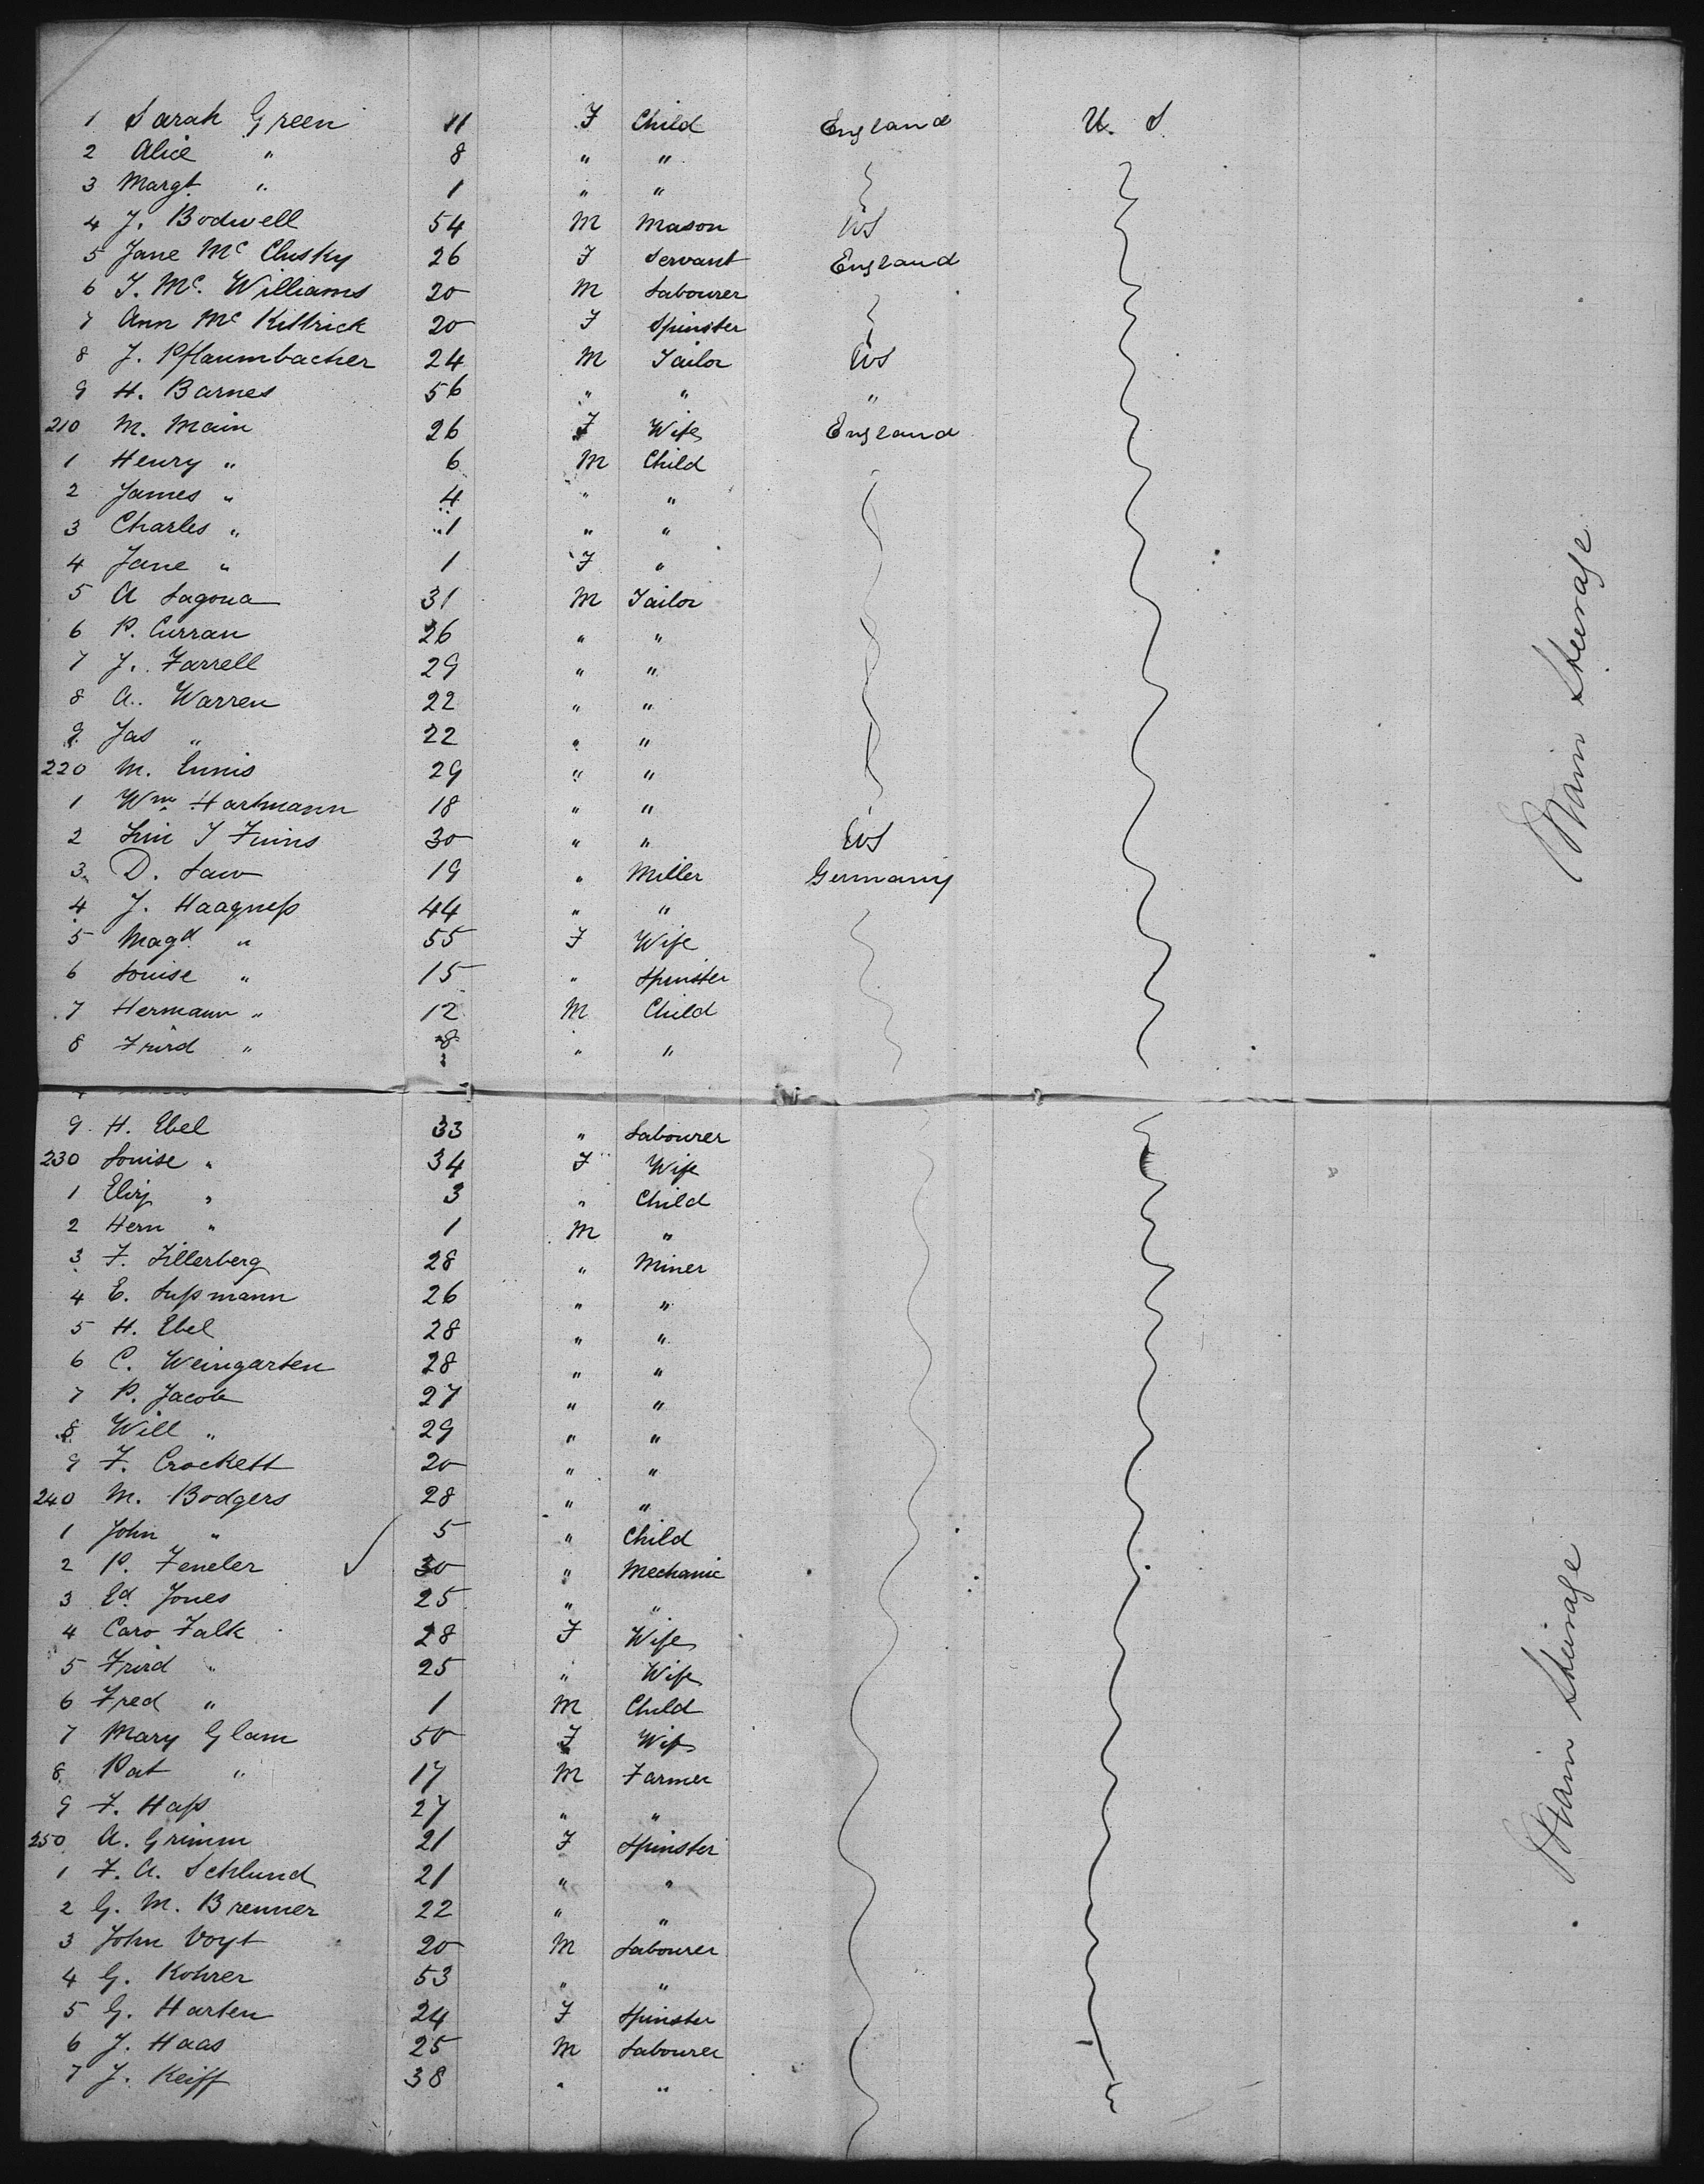 1 Sarah Green 11 F Child England U. S.
2 Alice " 8 " "
3 Margt. " 1 " "
4 J. Bodwell 54 M Mason US
5 Jane Mc Clusky 26 F Servant England
6 J. Mc. Williams 20 M Labourer
7 Ann Mc Kittrick 20 F Spinster
8 J. Pflaumbacher 24 M Tailor US
9 H. Barnes 56 " " "
210 M. Main 26 F Wife England
1 Henry " 6 M Child
2 James " 4 " "
3 Charles " 1 " "
4 Jane " 1 F "
5 A Lagona 31 M Tailor
6 P. Curran 26 " "
7 J. Farrell 29 " "
8 A. Warren 22 " "
9 Jas " 22 " "
220 M. Ennis 29 " "
1 Wm Hartmann 18 " "
2 30 " " US
3 D. Law 19 " Miller Germany
4 J. Haagneſs 44 " "
5 Magd. " 55 F Wife
6 Louise " 15 " Spinster
7 Hermann " 12 M Child
8 Frird " 8 " "
9 H. Ebel 33 " Labourer
230 Louise " 34 F Wife
1 Eliz " 3 " Child
2 Hern " 1 M "
3 F. Tillerberg 28 " Miner
4 E. Suſsmann 26 " "
5 H. Ebel 28 " "
6 C. Weingarten 28 " "
7 P. Jacob 27 " "
8 Will " 29 " "
9 F. Crockett 20 " "
240 M. Bodgers 28 " "
1 John " 5 " Child
2 P. Feneler ✓ 30 " Mechanic
3 Ed. Jones 25 " "
4 Caro Falk 28 F Wife
5 Frird " 25 " Wife
6 Fred " 1 M Child
7 Mary Glam 50 F Wife
8 Pat " 17 M Farmer
9 F. Haſs 27 " "
250 A. Grimm 21 F Spinster
1 F. A. Schlund 21 " "
2 G. M. Brenner 22 " "
3 John Voyt 20 M Labourer
4 G. Kohrer 53 " "
5 G. Harten 24 F Spinster
6 J. Haas 25 M Labourer
7 J. Keiff 38 " "
Main Steerage
Main Steerage